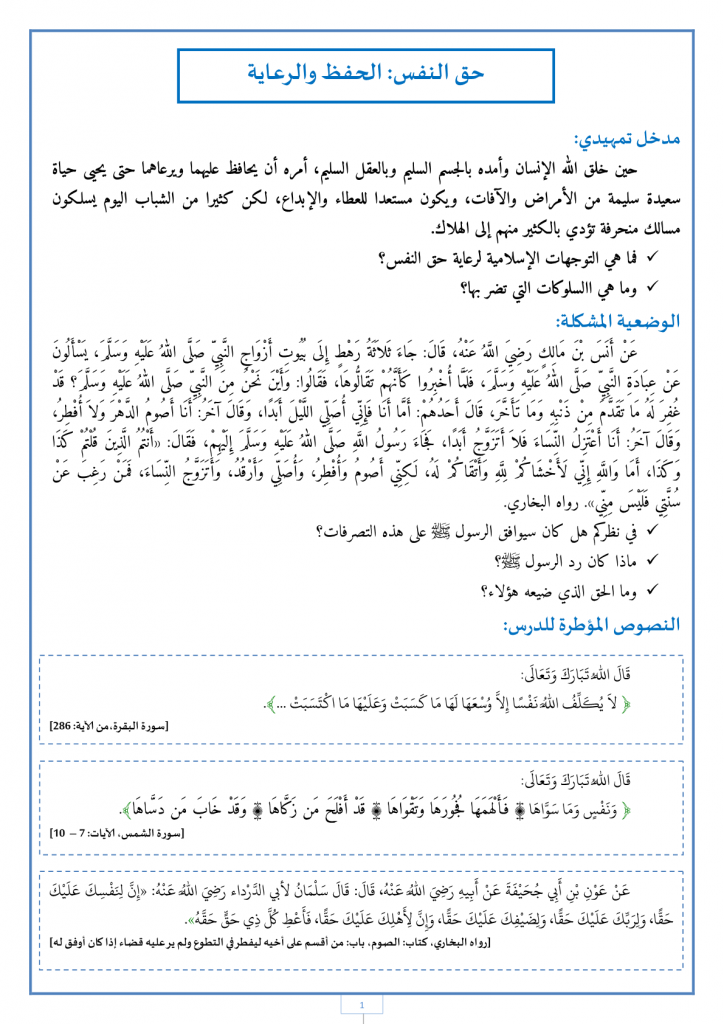 حق النفس: الحفظ والرعاية
مدخل تمهيدي:
حين خلق الله الإنسان وأمده بالجسم السليم وبالعقل السليم، أمره أن يحافظ عليهما ويرعاهما حتى يحيى حياة
سعيدة سليمة من الأمراض والآفات، ويكون مستعدا للعطاء والإبداع، لكن كثيرا من الشباب اليوم يسلكون
مسالك منحرفة تؤدي بالكثير منهم إلى الهلاك.
✓ فما هي التوجهات الإسلامية لرعاية حق النفس؟
✓ وما هي االسلوكات التي تضر بها؟
الوضعية المشكلة:
عَنْ أَنَسَ بْنَ مَالِكٍ رَضِيَ اللَّهُ عَنْهُ، قَالَ: جَاءَ ثَلاَثَةُ رَهْطٍ إِلَى بُيُوتِ أَزْوَاجِ النَّبِيِّ صَلَّى اللهُ عَلَيْهِ وَسَلَّمَ، يَسْأَلُونَ
عَنْ عِبَادَةِ النَّبِيِّ صَلَّى اللهُ عَلَيْهِ وَسَلَّمَ، فَلَمَّا أُخْبِرُوا كَأَنَّهُمْ تَقَالُّوهَا، فَقَالُوا: وَأَيْنَ نَحْنُ مِنَ النَّبِيِّ صَلَّى اللهُ عَلَيْهِ وَسَلَّمَ؟ قَدْ
غُفِرَ لَهُ مَا تَقَدَّمَ مِنْ ذَنْبِهِ وَمَا تَأَخَّرَ، قَالَ أَحَدُهُمْ: أَمَّا أَنَا فَإِنِّي أُصَلِّي اللَّيْلَ أَبَدًا، وَقَالَ آخَرُ: أَنَا أَصُومُ الدَّهْرَ وَلاَ أُفْطِرُ،
وَقَالَ آخَرُ: أَنَا أَعْتَزِلُ النِّسَاءَ فَلاَ أَتَزَوَّجُ أَبَدًا، فَجَاءَ رَسُولُ اللَّهِ صَلَّى اللهُ عَلَيْهِ وَسَلَّمَ إِلَيْهِمْ، فَقَالَ: «أَنْتُمُ الَّذِينَ قُلْتُمْ كَذَا
وَكَذَا، أَمَا وَاللَّهِ إِنِّي لَأَخْشَاكُمْ لِلَّهِ وَأَتْقَاكُمْ لَهُ، لَكِنِّي أَصُومُ وَأُفْطِرُ، وَأُصَلِّي وَأَرْقُدُ، وَأَتَزَوَّجُ النِّسَاءَ، فَمَنْ رَغِبَ عَنْ
سُنَّتِي فَلَيْسَ مِنِّي». رواه البخاري.
✓ في نظركم هل كان سيوافق الرسول ﷺ على هذه التصرفات؟
✓ ماذا كان رد الرسول ﷺ؟
✓ وما الحق الذي ضيعه هؤلاء؟
النصوص المؤطرة للدرس:
قَالَ اللهُ تَبَارَكَ وَتَعَالَى:
﴿ لاَ يُكَلِّفُ اللهُ نَفْسًا إِلاَّ وُسْعَهَا لَهَا مَا كَسَبَتْ وَعَلَيْهَا مَا اكْتَسَبَتْ ...﴾.
[سورة البقرة، من الآية: 286]
قَالَ اللهُ تَبَارَكَ وَتَعَالَى:
﴿ وَنَفْسٍ وَمَا سَوَّاهَا ۞ فَأَلْهَمَهَا فُجُورَهَا وَتَقْوَاهَا ۞ قَدْ أَفْلَحَ مَن زَكَّاهَا ۞ وَقَدْ خَابَ مَن دَسَّاهَا﴾.
[سورة الشمس، الآيات: 7 – 10]
عَنْ عَوْنِ بْنِ أَبِي جُحَيْفَةَ عَنْ أَبِيهِ رَضِيَ اللهُ عَنْهُ، قَالَ: قَالَ سَلْمَانُ لأبي الدَّرْداء رَضِيَ اللهُ عَنْهُ: «إِنَّ لِنَفْسِكَ عَلَيْكَ
حَقًّا، وَلِرَبِّكَ عَلَيْكَ حَقًّا، وَلِضَيْفِكَ عَلَيْكَ حَقًّا، وَإِنَّ لِأَهْلِكَ عَلَيْكَ حَقًّا، فَأَعْطِ كُلَّ ذِي حَقٍّ حَقَّهُ».
[رواه البخاري، كتاب: الصوم، باب: من أقسم على أخيه ليفطر في التطوع ولم ير عليه قضاء إذا كان أوفق له]
1